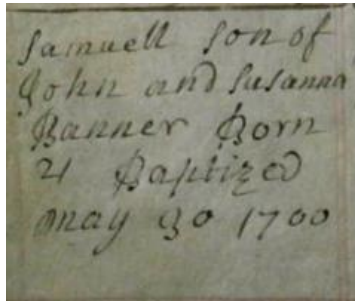 Samuell Son of
John and Susanna
Banner Born
21 Baptized
may 30 1700